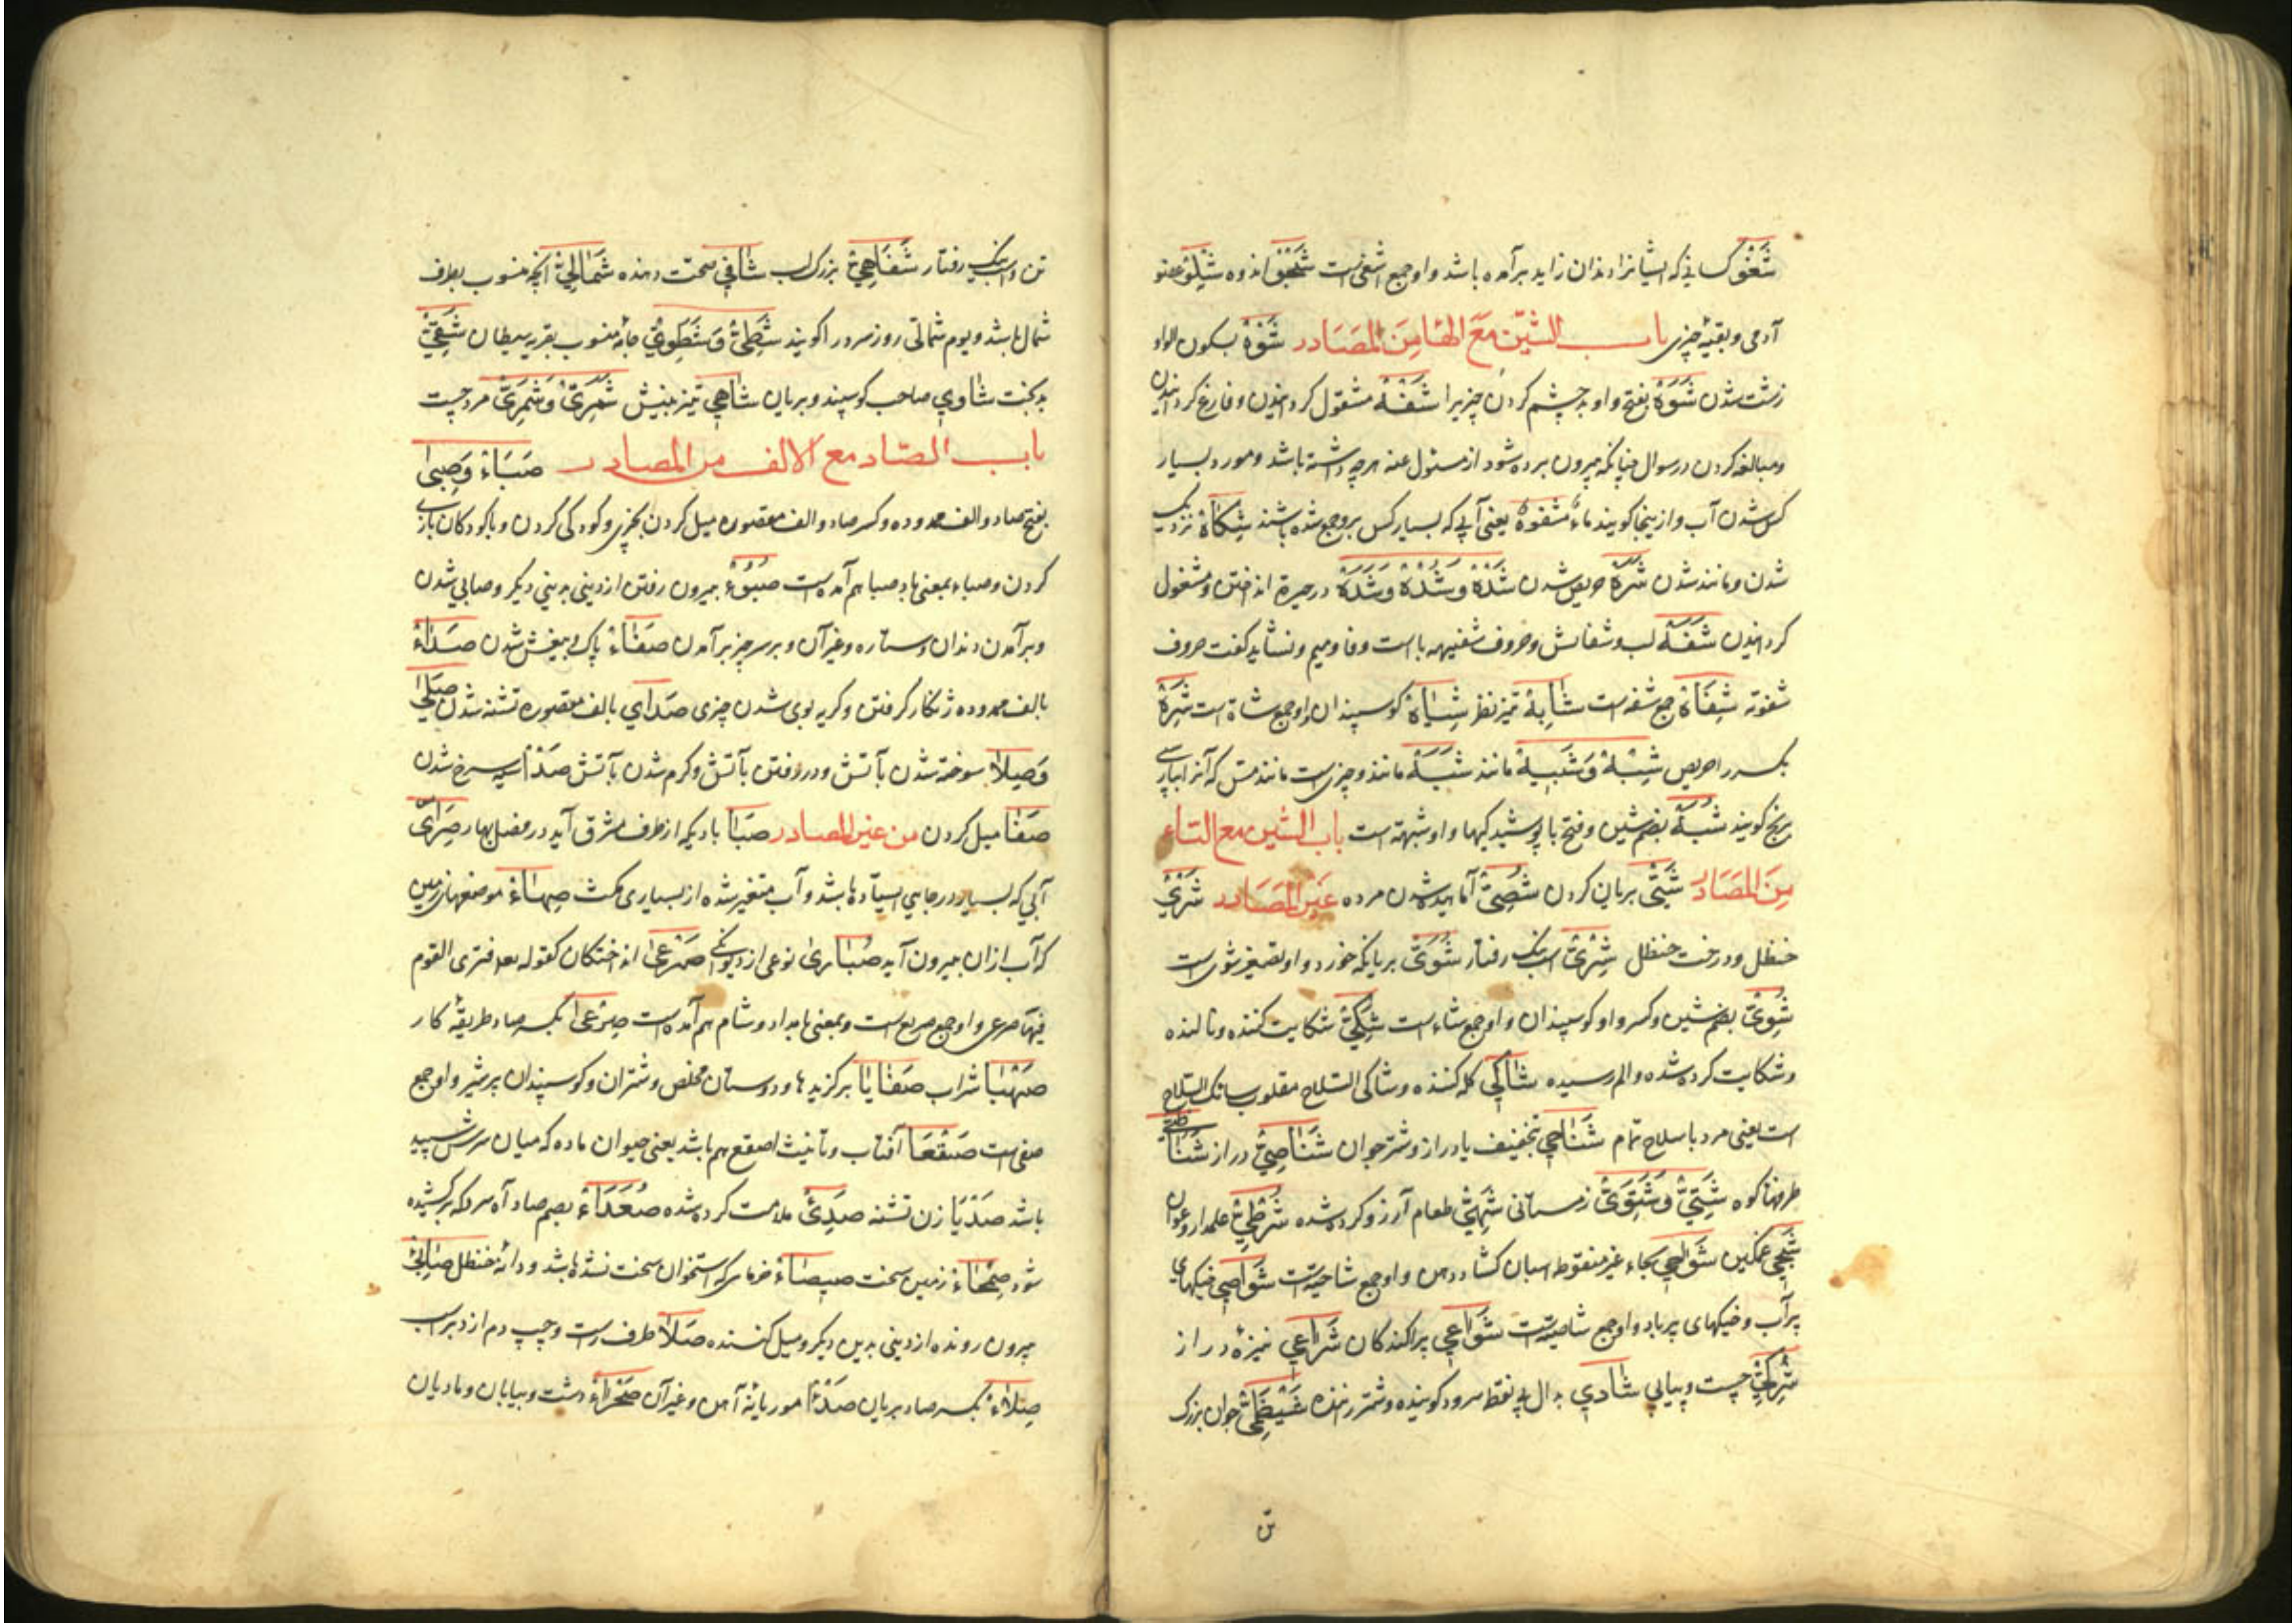 شَغْو کسانی که ایشانرا دندان زاید برآمده باشد واو جمع اشغی است اندوه شِلْو عضو
آدمی وبقیهٔ چیزی باب الشین مع الها من المصادر شَوْهٌ بسکون الواو
زشت شدن شَوَهٌ بفتح واو بد چشم کردن چیزیرا شَفْهٌ مشغول کردانیدن وفارغ کردانیدن
ومبالغه کردن در سوال چنانکه بیرون برده شود از مسئول عنه هرچه داشته باشد ومورد بسیار
کس شدن آب وازینجا کویند ماءٌ مشفوهٌ یعنی آبی که بسیار کس برو جمع شده باشند نزدیک
شدن ومانند شدن شَرَهٌ حریص شدن شَدْهٌ وشُدْهٌ وشَدَهٌ در حیرة انداختن ومشغول
کردانیدن شَفَهٌ لب وشفاش وحروف شفهیه با است وفا ومیم ونشاید کفت حروف
شفوته شِفَاهٌ جمع شفه است تیزنظر شِیَاهٌ کوسپندان واو جمع شاة است شَرِهٌ
بکسر را حریص شِبْهٌ وشَبِیهٌ مانند شَبَهٌ مانند وچیزیست مانند مس که آنرا
برنج کویند شُبَهٌ بضم شین وفتح با پوشیدکیها واو شبهته است باب الشین مع التاء
من المصادر شَیٌّ بریان کردن شُصِیٌّ آماهیده شدن مرده غیر المصادر شَرْیٌ
حنظل ودرخت حنظل رفتار شُوَیٌّ بریانکه خورد واو تصغیر شوی است
شُوِیٌّ بضم شین وکسر واو کوسپندان واو جمع شاء است شَکِیٌّ شکایت کننده ونالنده
وشکایت کرده شده والم رسیده شَاکِی کله کننده وشاکی السلاح مقلوب شائک السلاح
است یعنی مرد با سلاح تمام شَنَاحِی بتخفیف یا دراز وشتر جوان شَنَاصِیٌّ دراز
طرفهای کوه شَتِیٌّ وشَتَوِیٌّ زمستانی شَهِیٌّ طعام آرزو کرده شده شُرْطِیٌّ علمدار
شَجِی غمکین شَوَاحِی بحاء غیر منقوطه اسبان کشاده دهن واو جمع شاحیة است شَوَاصِی خیکهای
پرآب وخیکهای پرباد واو جمع شاصیة است شَوَاعِی پراکندکان شُرَاعِی نیزهٔ دراز
چست وپیاپی شَادِی بدال بی نقطه سرود کوینده وشتر راننده شَیْظَمِیٌّ جوان بزرک
تن
تن واسب نیک رفتار شُفَاهِیٌّ بزرک لب شَافِی صحت دهنده شَمَالِیٌّ آنچه منسوب بطرف
شمال باشد ویوم شمالی روز سرد را کویند شَطَوِیٌّ جامهٔ منسوب بقریه شَقِیٌّ
بدبخت شَاوِی صاحب کوسپند وبریان شَاهِی تیزبینش شِمَّرِیٌّ وشَمَّرِیٌّ مرد چست
باب الصاد مع الالف من المصادر صَبَاءٌ وصِبیً
بفتح صاد والف ممدوده وکسر صاد والف مقصوره میل کردن بچیزی وکودکی کردن وبا کودکان بازی
کردن وصباء بمعنی باد صبا هم آمده است صُبُوءٌ بیرون رفتن از دینی بدینی دیکر وصابی شدن
وبرآمدن دندان وستاره وغیرآن وبر سر چیز برآمدن صَفَاءٌ پاک وبیغش شدن صَدَاءٌ
بالف ممدوده ژنکار کرفتن وکریه بوی شدن چیزی صَدَای بالف مقصوره تشنه شدن صَلْی
وَصِلَاءٌ سوخته شدن بآتش ودررفتن بآتش وکرم شدن بآتش صَدَأ سیه سرخ شدن
صَغَا میل کردن من غیر المصادر صَبَا بادیکه از طرف مشرق آید در فصل بهار صَرَای
آبی که بسیار در جایی ایستاده باشد وآب متغیر شده از بسیاری مکث صِهَاءٌ موضعهای زمین
که آب ازان بیرون آید نوعی از دیوانکی صَرْعَی انداختکان کقوله تعه فتری القوم
فیها صرعی واو جمع صریع است وبمعنی بامداد وشام هم آمده است صِرْعَی بکسر صاد طریقهٔ کار
صَهْبَا شراب صَفَایَا برکزیدها ودوستان مخلص وشتران وکوسپندان پرشیر واو جمع
صفی است صَقْعَا آفتاب وتانیث اصقع هم باشد یعنی حیوان ماده که میان سرش سپید
باشد صَدْیَا زن تشنه ملامت کرده شده صُعَدَاءٌ بضم صاد آه سرد که برکشیده
شود صَحْمَاءٌ زمین سخت صِیصَاءٌ خرمایی که استخوان سخت نشده باشد ودانهٔ حنظل صَابِئٌ
بیرون رونده از دینی بدین دیکر ومیل کننده صَلَا طرف راست وچپ دم از دبر اسب
صِلَاءٌ بکسر صاد بریان صَدَأ موریانهٔ آهن وغیرآن صَحْرَاءٌ دشت وبیابان ومادیان